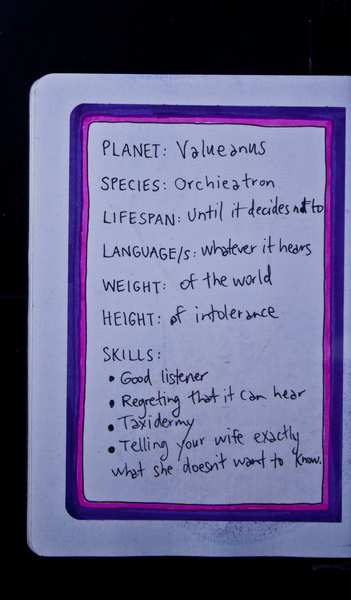 PLANET: Valueanus
SPECIES: Orchieatron
LIFESPAN: Until it decides not to
LANGUAGE/s: whatever it hears
WEIGHT: of the world
HEIGHT: of intolerance
SKILLS:
• Good listener
• Regreting that it can hear
• Taxidermy
• Telling your wife exactly
what she doesn't want to know.